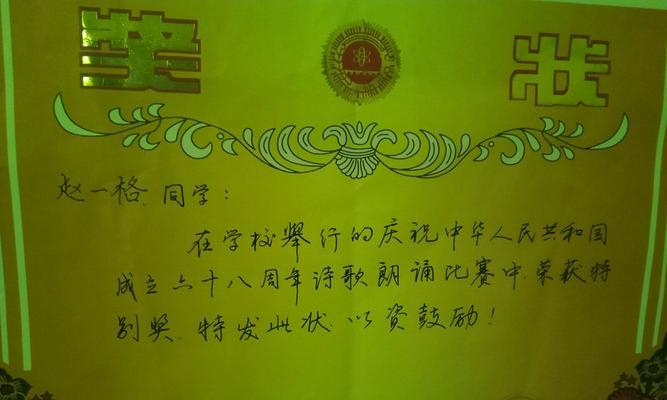 奖 状
赵一格 同学:
在学校举行的庆祝中华人民共和国
成立六十八周年诗歌朗诵比赛中.荣获特
别奖.特发此状.以资鼓励!